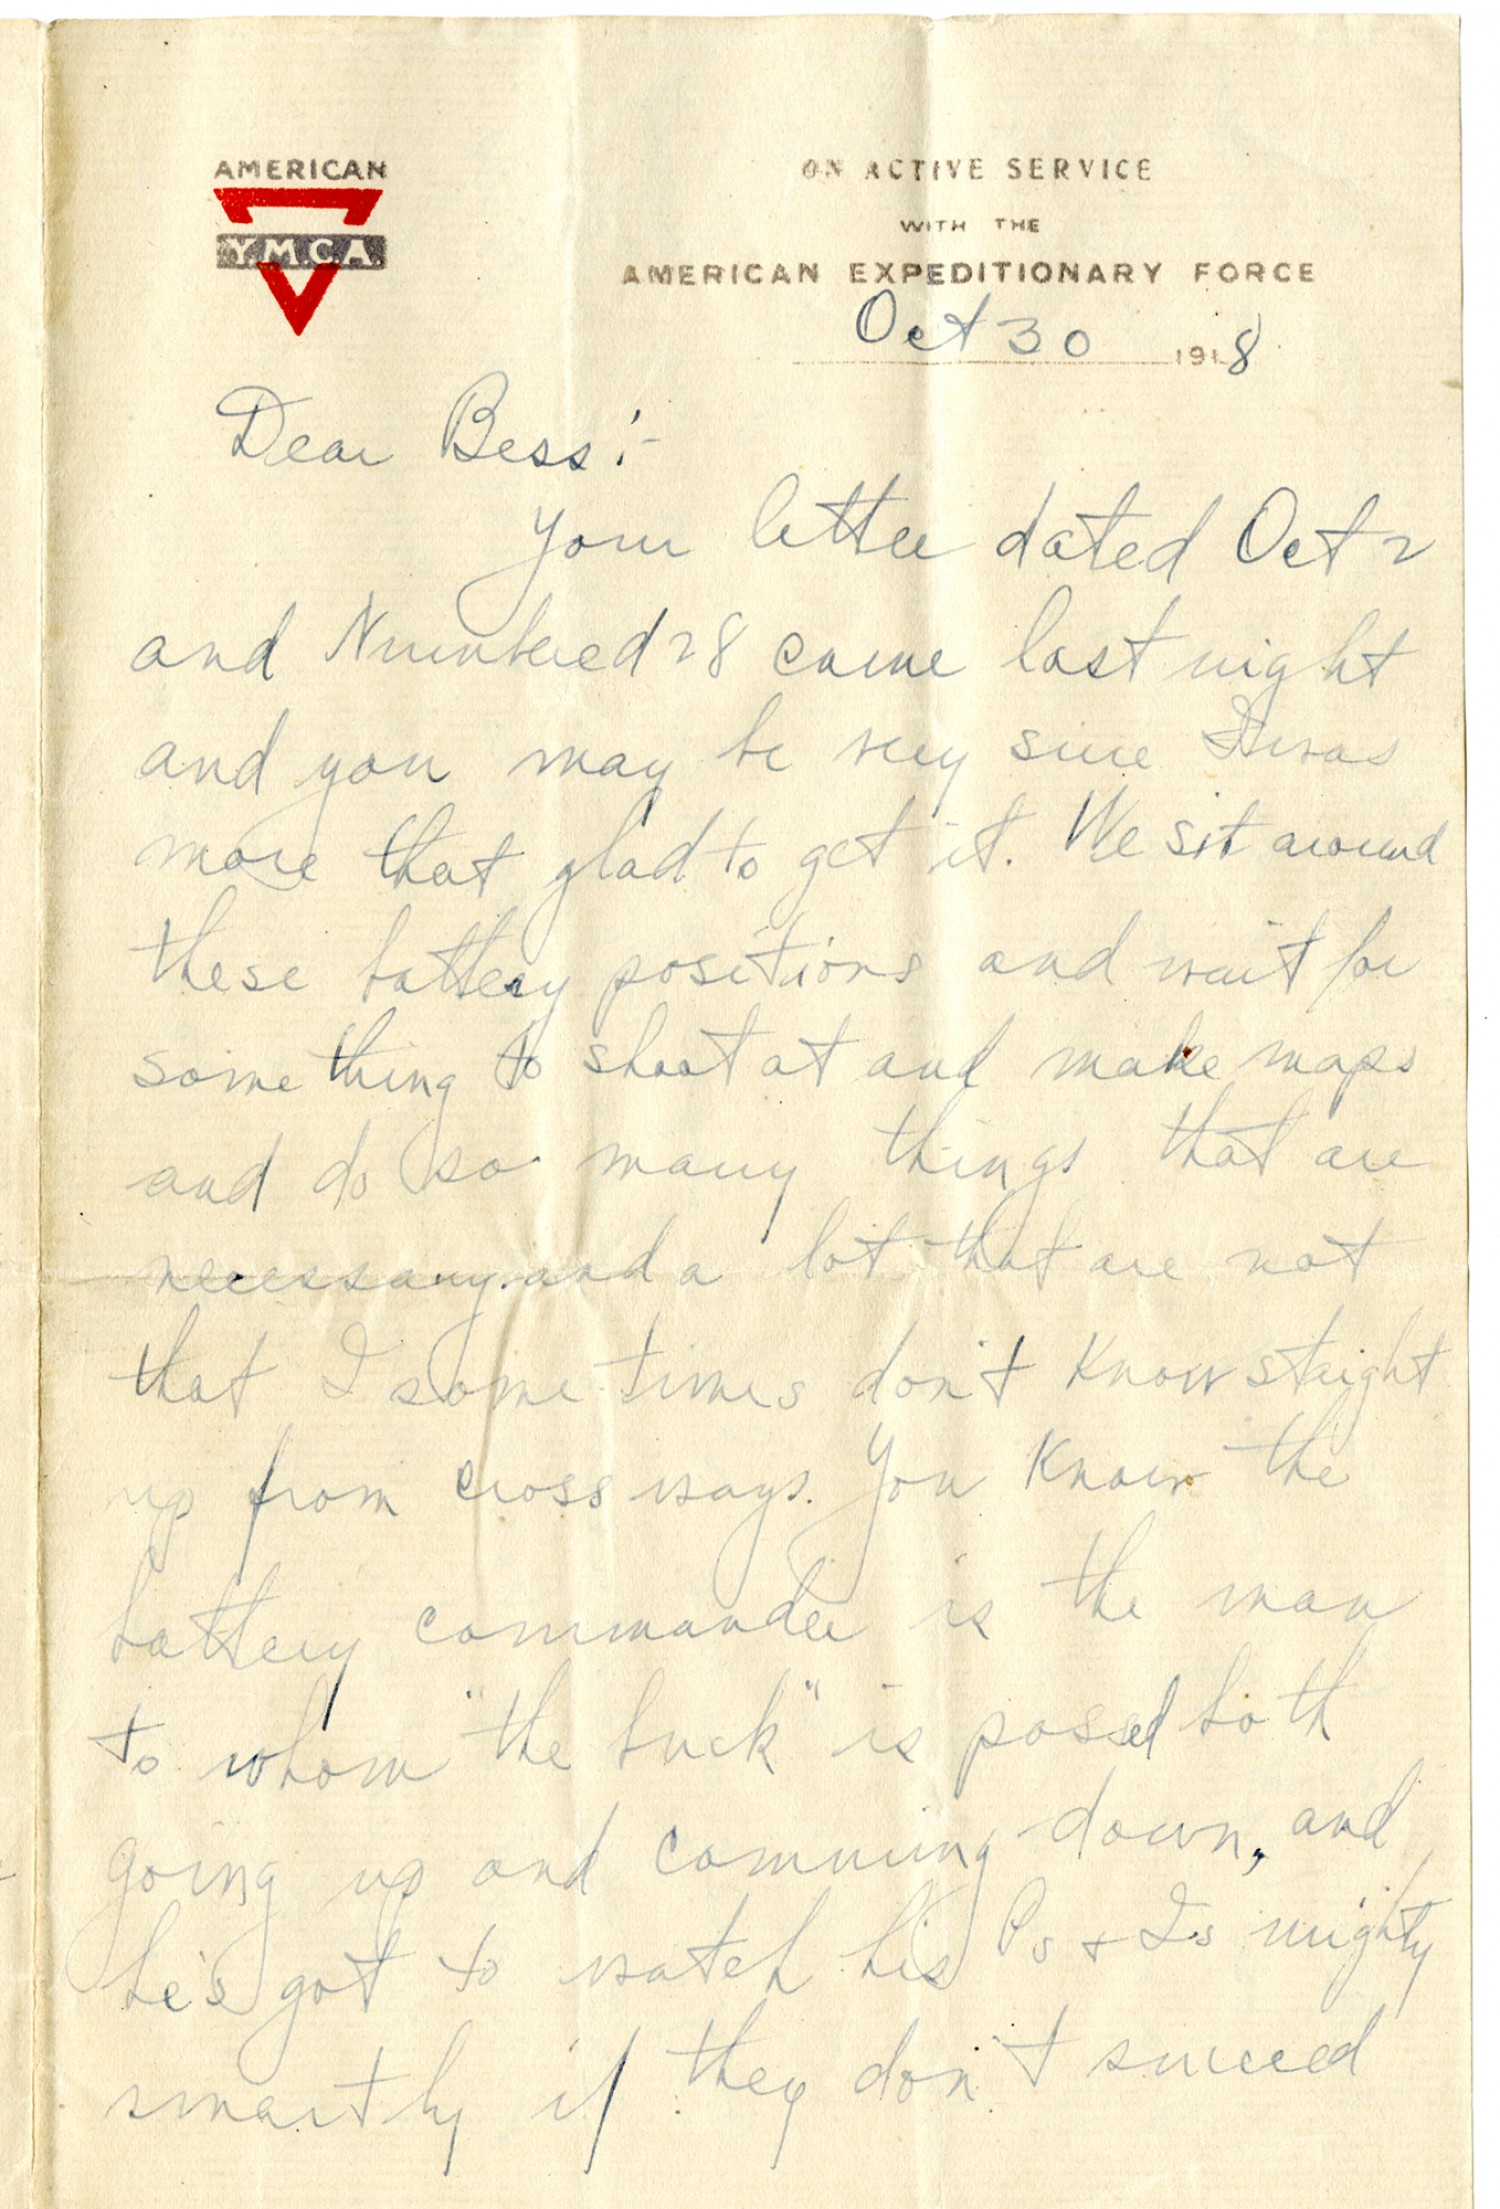 AMERICAN
YMCA
ON ACTIVE SERVICE
WITH THE
AMERICAN EXPEDITIONARY FORCE
Oct 30 1918
Dear Bess:-
Your letter dated Oct 2
and Numbered 28 came last night
and you may be very sure I was
more that glad to get it. We sit around
these battery positions and wait for
something to shoot at and make maps
and do so many things that are
necessary and a lot that are not
that I some times don't know staight
up from cross ways. You know the
battery commander is the man
to whom "the buck" is passed both
going up and comming down, and
he's got to watch his Ps + Is mighty
smartly if they don't succeed